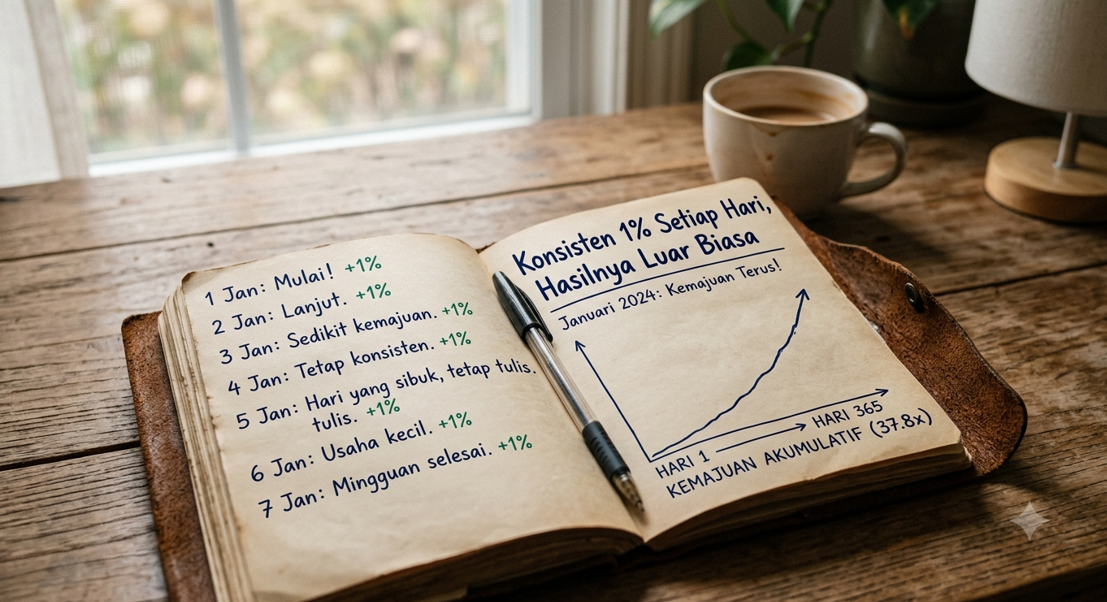 1 Jan: Mulai! +1%
2 Jan: Lanjut. +1%
3 Jan: Sedikit kemajuan. +1%
4 Jan: Tetap konsisten. +1%
5 Jan: Hari yang sibuk, tetap tulis.
tulis. +1%
6 Jan: Usaha kecil. +1%
7 Jan: Mingguan selesai. +1%
Konsisten 1% Setiap Hari,
Hasilnya Luar Biasa
Januari 2024: Kemajuan Terus!
HARI 1 HARI 365
KEMAJUAN AKUMULATIF (37.8x)